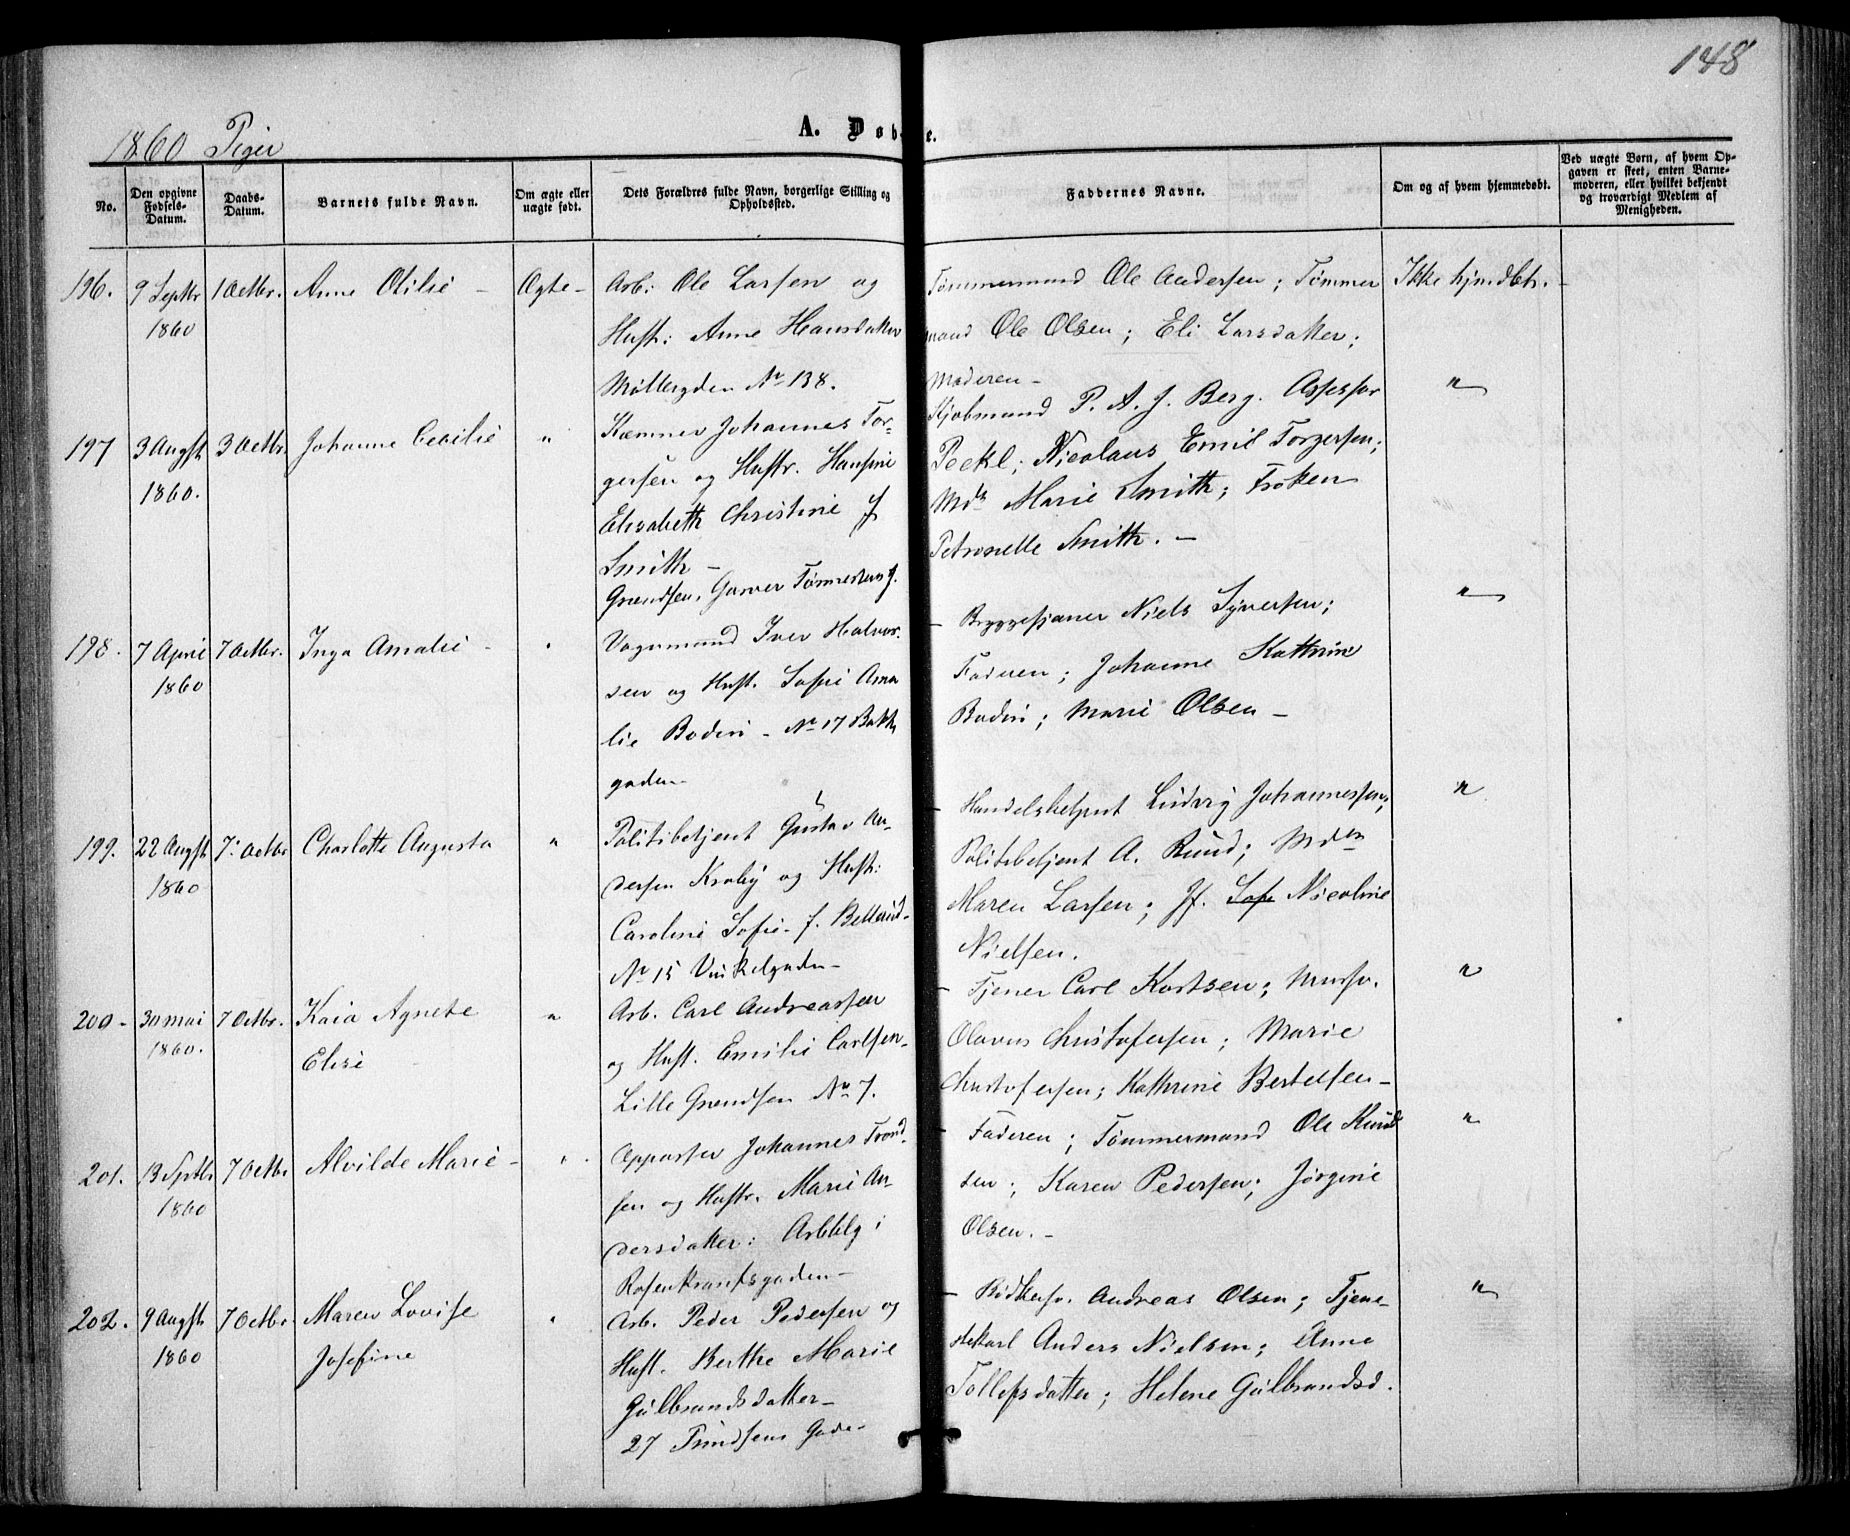 148
1860 Piger
A. Døbte.
No.
Den opgivne Fødsels-Datum.
Daabs-Datum.
Barnets fulde Navn.
Om ægte eller uægte født.
Dets Forældres fulde Navn, borgerlige Stilling og Opholdssted.
Faddernes Navne.
Om og af hvem hjemmedøbt.
Ved uægte Børn, af hvem Opgaven er skeet, enten Barnemoderen, eller hvilket bekjendt og troværdigt Medlem af Menigheden.
196. 9 Septbr 1860 1 Octbr. Anne Otilie - Ægte-
Arb: Ole Larsen og
Hustr: Anne Hansdatter
Møllergden No 138.
Tømmermand Ole Andersen; Tømmer
mand Ole Olsen; Eli Larsdatter;
Moderen-
Ikke hjmdbt.
197 3 Augst 1860. 3 Octbr. Johanne Cecilie "
Kæmner Johannes Tor-
gersen og Hustr. Hansine
Elisabeth Christine f
Smith -
Grændsen.
Kjøbmand P. A. J. Berg. Assessor
Peckel; Nicolaus Emil Torgersen;
Mdm Marie Smith; Frøken
Petronelle Smith. -
"
198. 7 April 1860 7 Octbr. Inga Amalie - "
Garver Tømmesters f.
Vognmand Iver Halvor-
sen og Hust. Sofie Ama
lie Bodin - No 17 Bakke
gaden-
- Bryggesjauer Niels Syversen;
Faderen; Johanne Kathrine
Bodin; Marie Olsen -
"
199. 22 Augst 1860 7. Octbr Charlotte Augusta "
Politibetjent Gustav An-
dersen Kroby og Hustr:
Caroline Sofie f. Bellerud-
No 15 Vinkelgaden-
- Handelsbetjent Ludvig Johannessen;
Politibetjent A. Rund; Mdm
Maren Larsen; Jf. Sofi Nicoline
Nielsen.
"
200- 30 Mai 1860. 7 Octbr. Kaia Agnete Elise "
Arb. Carl Andreassen
og Hust. Emilie Carlsen-
Lille Grændsen No 7.
- Tjener Carl Kortsen; Mursv.
Olavus Christofersen; Marie
Christofersen; Kathrine Bertelsen-
"
201. 13 Septbr 1860 7 Octbr Alvilde Marie - "
Oppasser Johannes Trond-
sen og Hustr. Marie An-
dersdatter: Arbblg i
Rosenkrantsgaden-
- Faderen; Tømmermand Ole Knud
sen; Karen Pedersen; Jørgine
Olsen. -
"
202. 9 Augst 1860 7 Octbr Maren Lovise Josefine "
Arb. Peder Pedersen og
Hust. Berthe Marie
Gulbrandsdatter-
27 Gade-
- Bødkersv. Andreas Olsen; Tjene-
stekarl Anders Nielsen; Anne
Tollefsdatter; Helene Gulbrandsd.
"